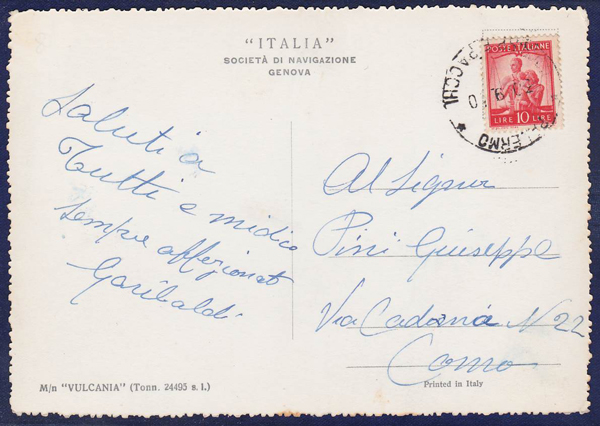 "ITALIA"
SOCIETÀ DI NAVIGAZIONE
GENOVA
POSTE ITALIANE
LIRE 10 LIRE
PALERMO
Saluti a
Tutti e
sempre affezionato
Garibaldi
Al Signor
Pini Guiseppe
Via Cadorna N 22
Como
M/n "VULCANIA" (Tonn. 24495 s. l.)
Printed in Italy